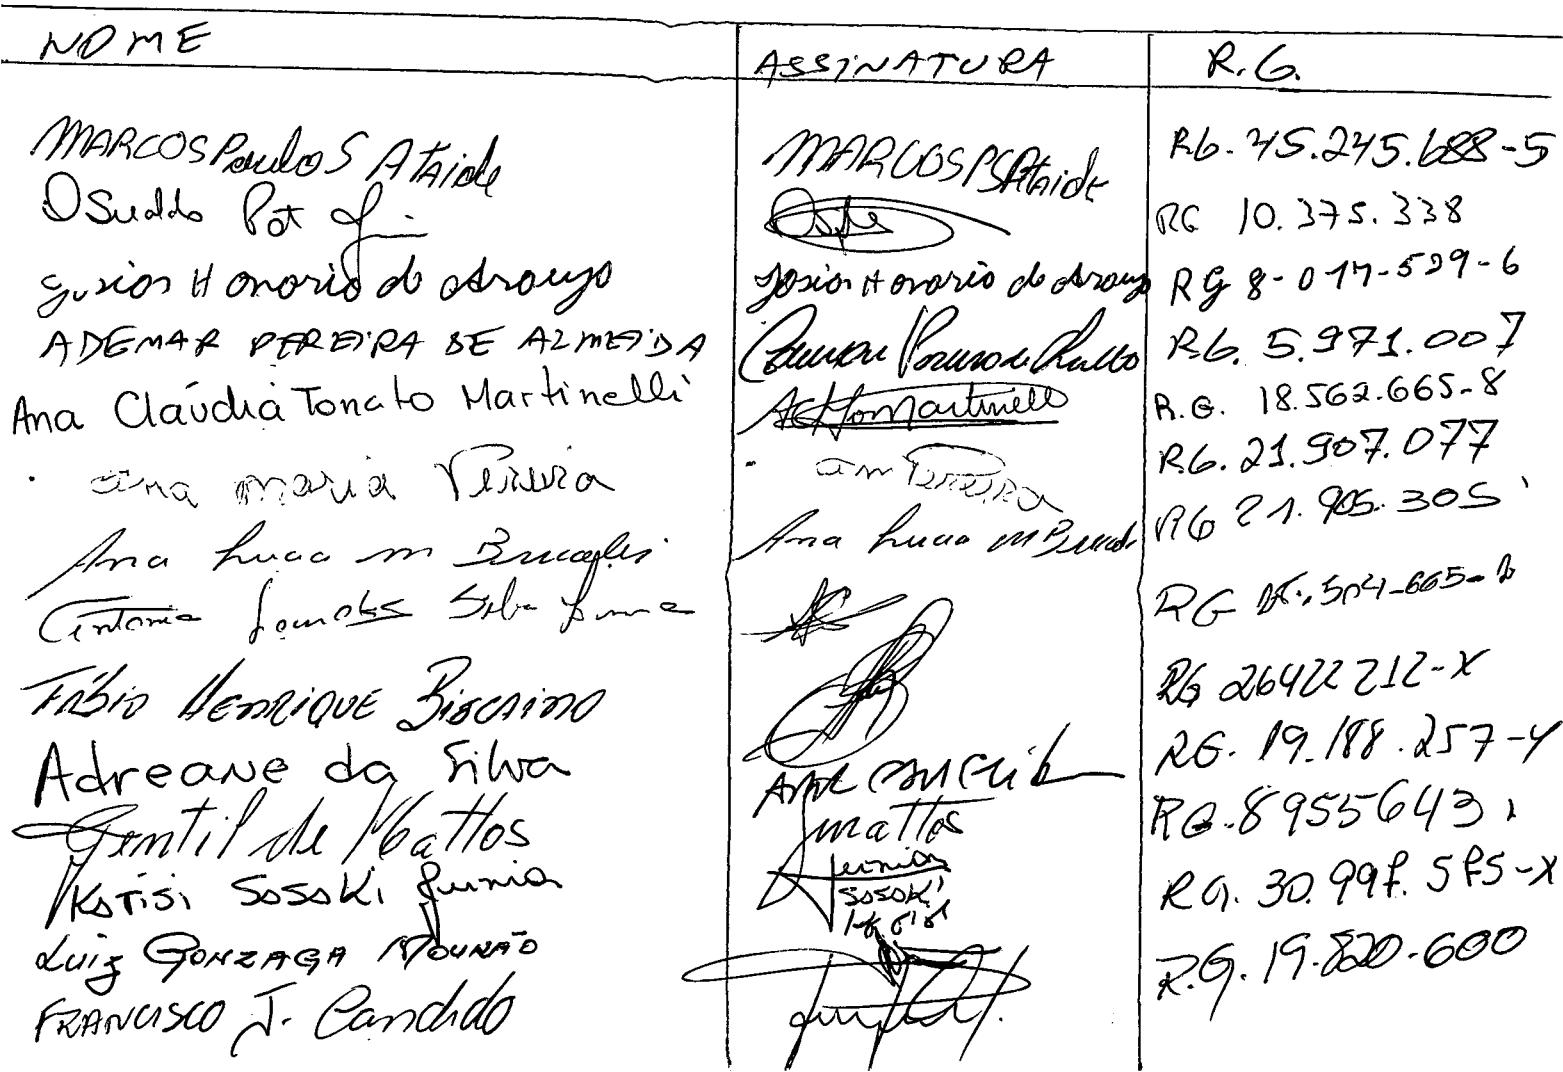 NOME ASSINATURA R.G.
MARCOS Paulo S Ataide MARCOS PS Ataide RG. 45.245.688-5
Osvaldo Pot RG 10.375.338
Josias Honorio de Araujo Josias Honorio de Araujo RG 8-017-529-6
ADEMAR PEREIRA DE ALMEIDA RG. 5.971.007
Ana Cláudia Tonato Martinelli ACTomartinelli R.G. 18.562.665-8
Ana maria Pereira am Pereira RG. 21.907.077
Ana Lucia m Ana Lucia m RG 21.905.305
Antonia Lourdes Silva RG
Fábio HENRIQUE Biscaino RG 26422212-X
Adreane da Silva RG. 19.188.257-4
Gentil de Mattos mattos RG.89556431
Katisi Sosoki Junior Junior Sosoki Katisi RG. 30.998.585-X
Luiz GONZAGA MOURÃO R.G. 19.820.600
FRANCISCO J. Candido